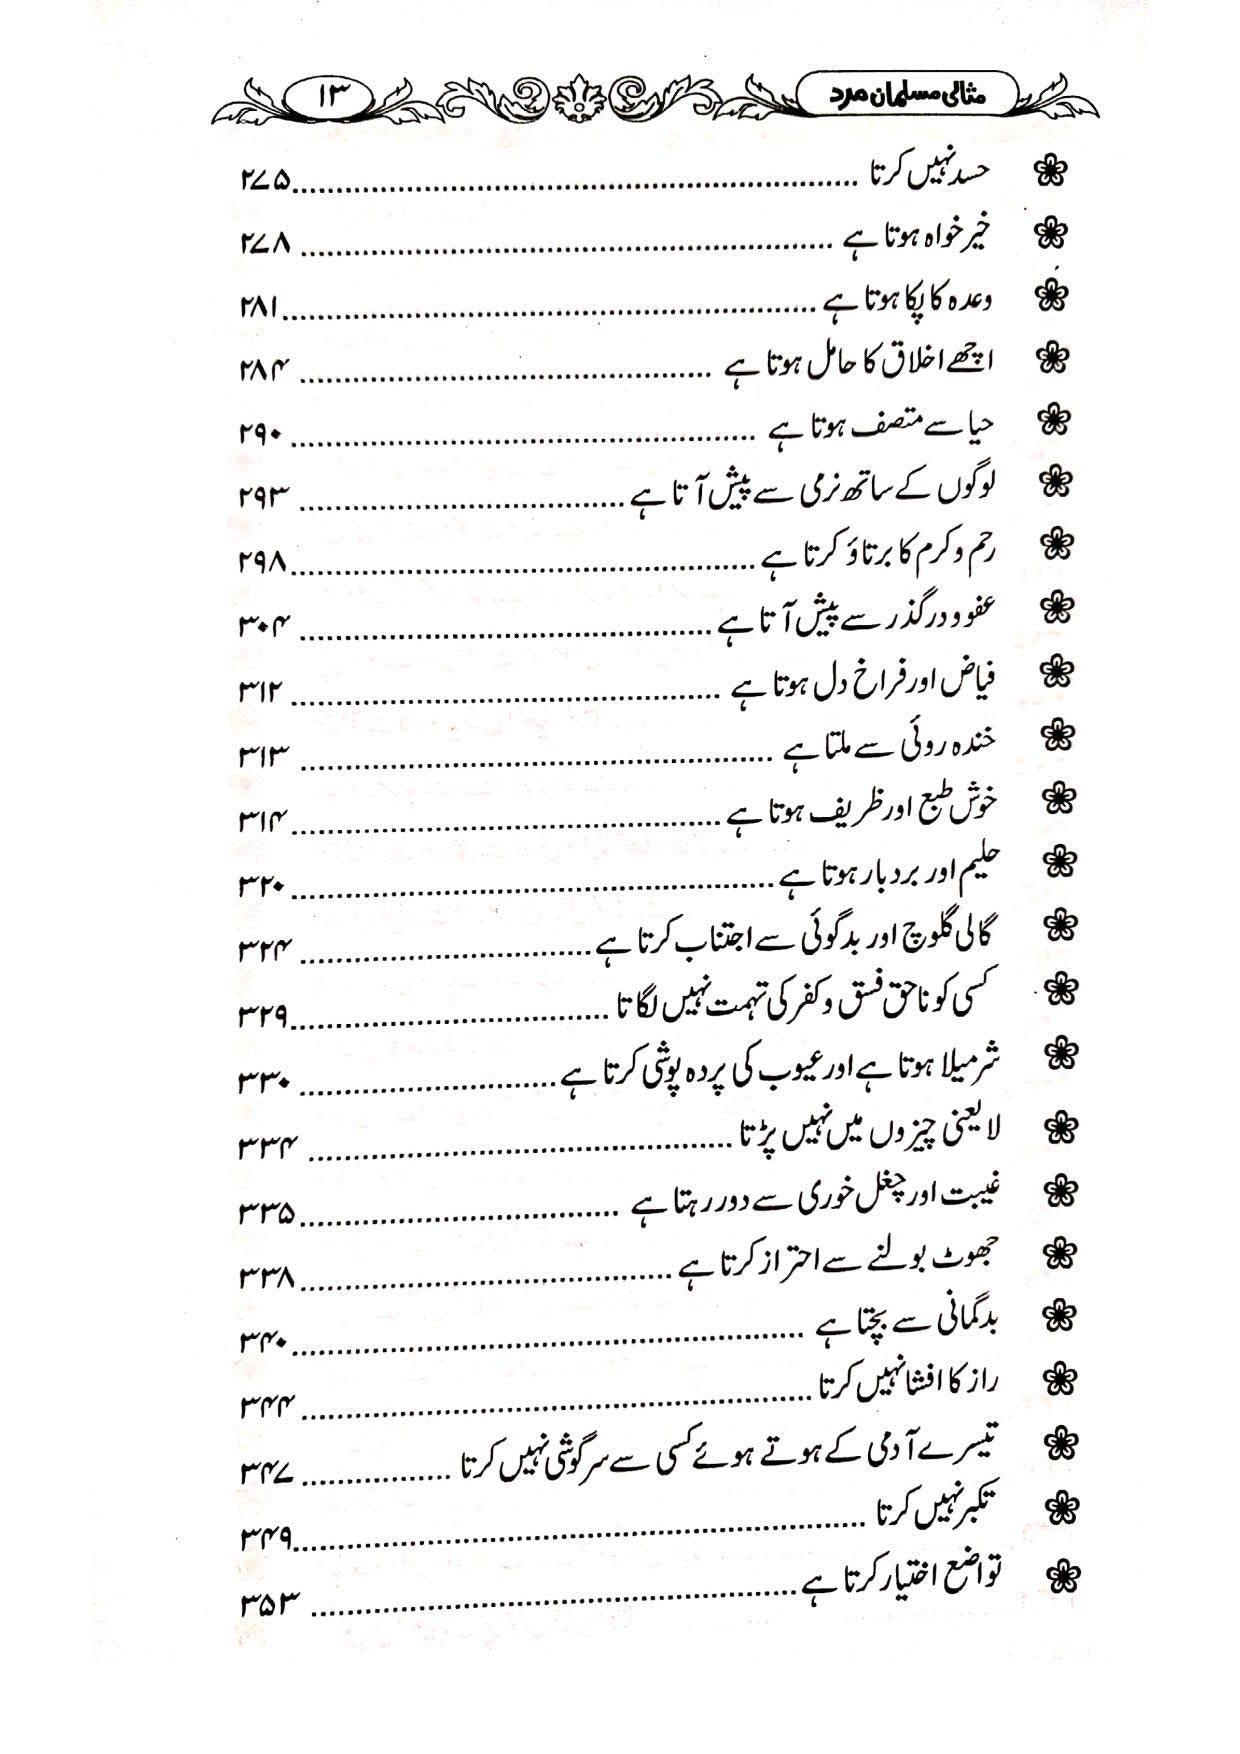 مثالی مسلمان مرد ۱۳
حسد نہیں کرتا ........ ۲۷۵
خیر خواہ ہوتا ہے ........ ۲۷۸
وعدہ کا پکا ہوتا ہے ........ ۲۸۱
اچھے اخلاق کا حامل ہوتا ہے ........ ۲۸۴
حیا سے متصف ہوتا ہے ........ ۲۹۰
لوگوں کے ساتھ نرمی سے پیش آتا ہے ........ ۲۹۳
رحم و کرم کا برتاؤ کرتا ہے ........ ۲۹۸
عفو و درگذر سے پیش آتا ہے ........ ۳۰۴
فیاض اور فراخ دل ہوتا ہے ........ ۳۱۲
خندہ روئی سے ملتا ہے ........ ۳۱۳
خوش طبع اور ظریف ہوتا ہے ........ ۳۱۴
حلیم اور بردبار ہوتا ہے ........ ۳۲۰
گالی گلوچ اور بدگوئی سے اجتناب کرتا ہے ........ ۳۲۴
کسی کو ناحق فسق و کفر کی تہمت نہیں لگاتا ........ ۳۲۹
شرمیلا ہوتا ہے اور عیوب کی پردہ پوشی کرتا ہے ........ ۳۳۰
لا یعنی چیزوں میں نہیں پڑتا ........ ۳۳۴
غیبت اور چغل خوری سے دور رہتا ہے ........ ۳۳۵
جھوٹ بولنے سے احتراز کرتا ہے ........ ۳۳۸
بدگمانی سے بچتا ہے ........ ۳۴۰
راز کا افشا نہیں کرتا ........ ۳۴۴
تیسرے آدمی کے ہوتے ہوئے کسی سے سرگوشی نہیں کرتا ........ ۳۴۷
تکبر نہیں کرتا ........ ۳۴۹
تواضع اختیار کرتا ہے ........ ۳۵۳